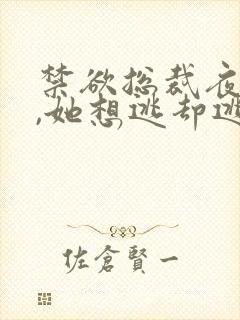 禁欲总裁夜
,她想逃却逃
佐倉賢一